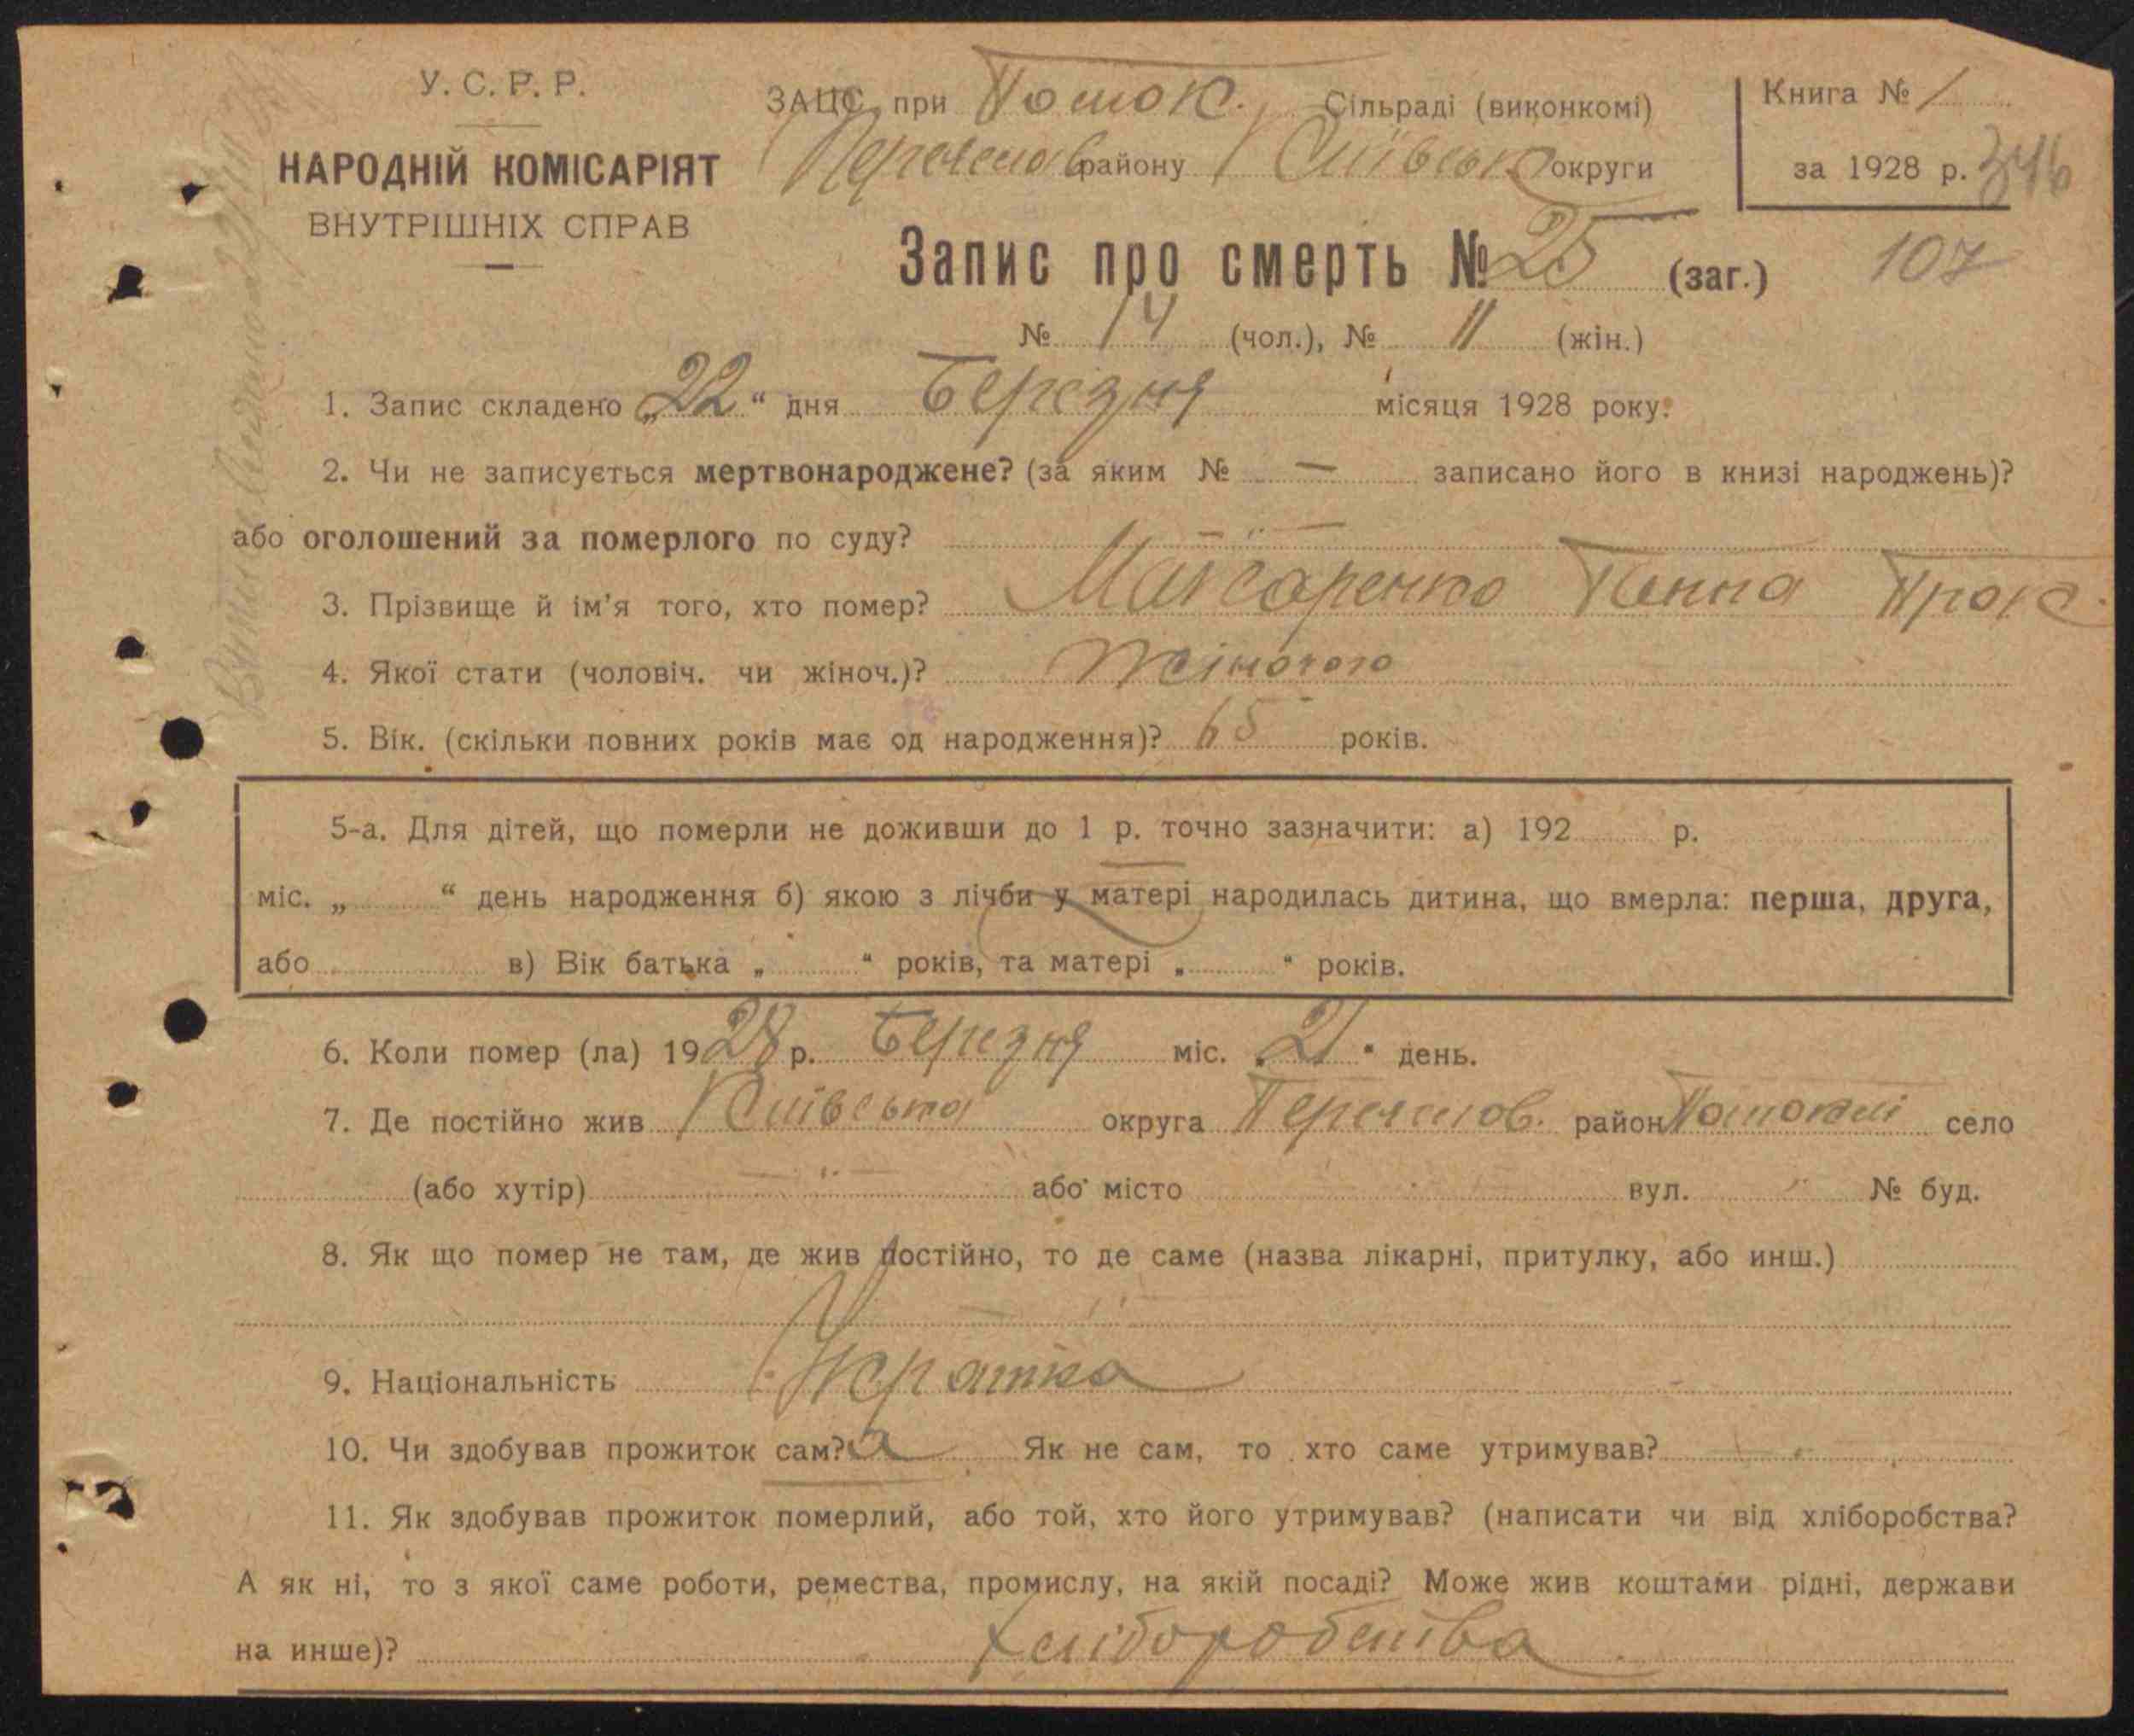 У. С. Р. Р.
НАРОДНІЙ КОМІСАРІЯТ
ВНУТРІШНІХ СПРАВ
ЗАЦС при Поток. Сільраді (виконкомі)
Переяслав району Київськ округи
Книга № 1
за 1928 р. 346
Запис про смерть № 25 (заг.) 107
№ 14 (чол.), № 11 (жін.)
1. Запис складено „22“ дня Березня місяця 1928 року.
2. Чи не записується мертвонароджене? (за яким № — записано його в книзі народжень)?
або оголошений за померлого по суду? — " —
3. Прізвище й ім'я того, хто помер? Макаренко Ганна Прок.
4. Якої стати (чоловіч. чи жіноч.)? Жіночого
5. Вік. (скільки повних років має од народження)? 65 років.
5-а. Для дітей, що померли не доживши до 1 р. точно зазначити: а) 192 р.
міс. „ “ день народження б) якою з лічби у матері народилась дитина, що вмерла: перша, друга,
або в) Вік батька „ “ років, та матері „ “ років.
6. Коли помер (ла) 1928 р. Березня міс. „21“ день.
7. Де постійно жив Київська округа Переяслов. район Потоки село
(або хутір) — " — або місто вул. " № буд.
8. Як що помер не там, де жив постійно, то де саме (назва лікарні, притулку, або инш.)
— " —
9. Національність Укр
10. Чи здобував прожиток сам? а Як не сам, то хто саме утримував? — " —
11. Як здобував прожиток померлий, або той, хто його утримував? (написати чи від хліборобства?
А як ні, то з якої саме роботи, ремества, промислу, на якій посаді? Може жив коштами рідні, держави
на инше)? Хліборобства